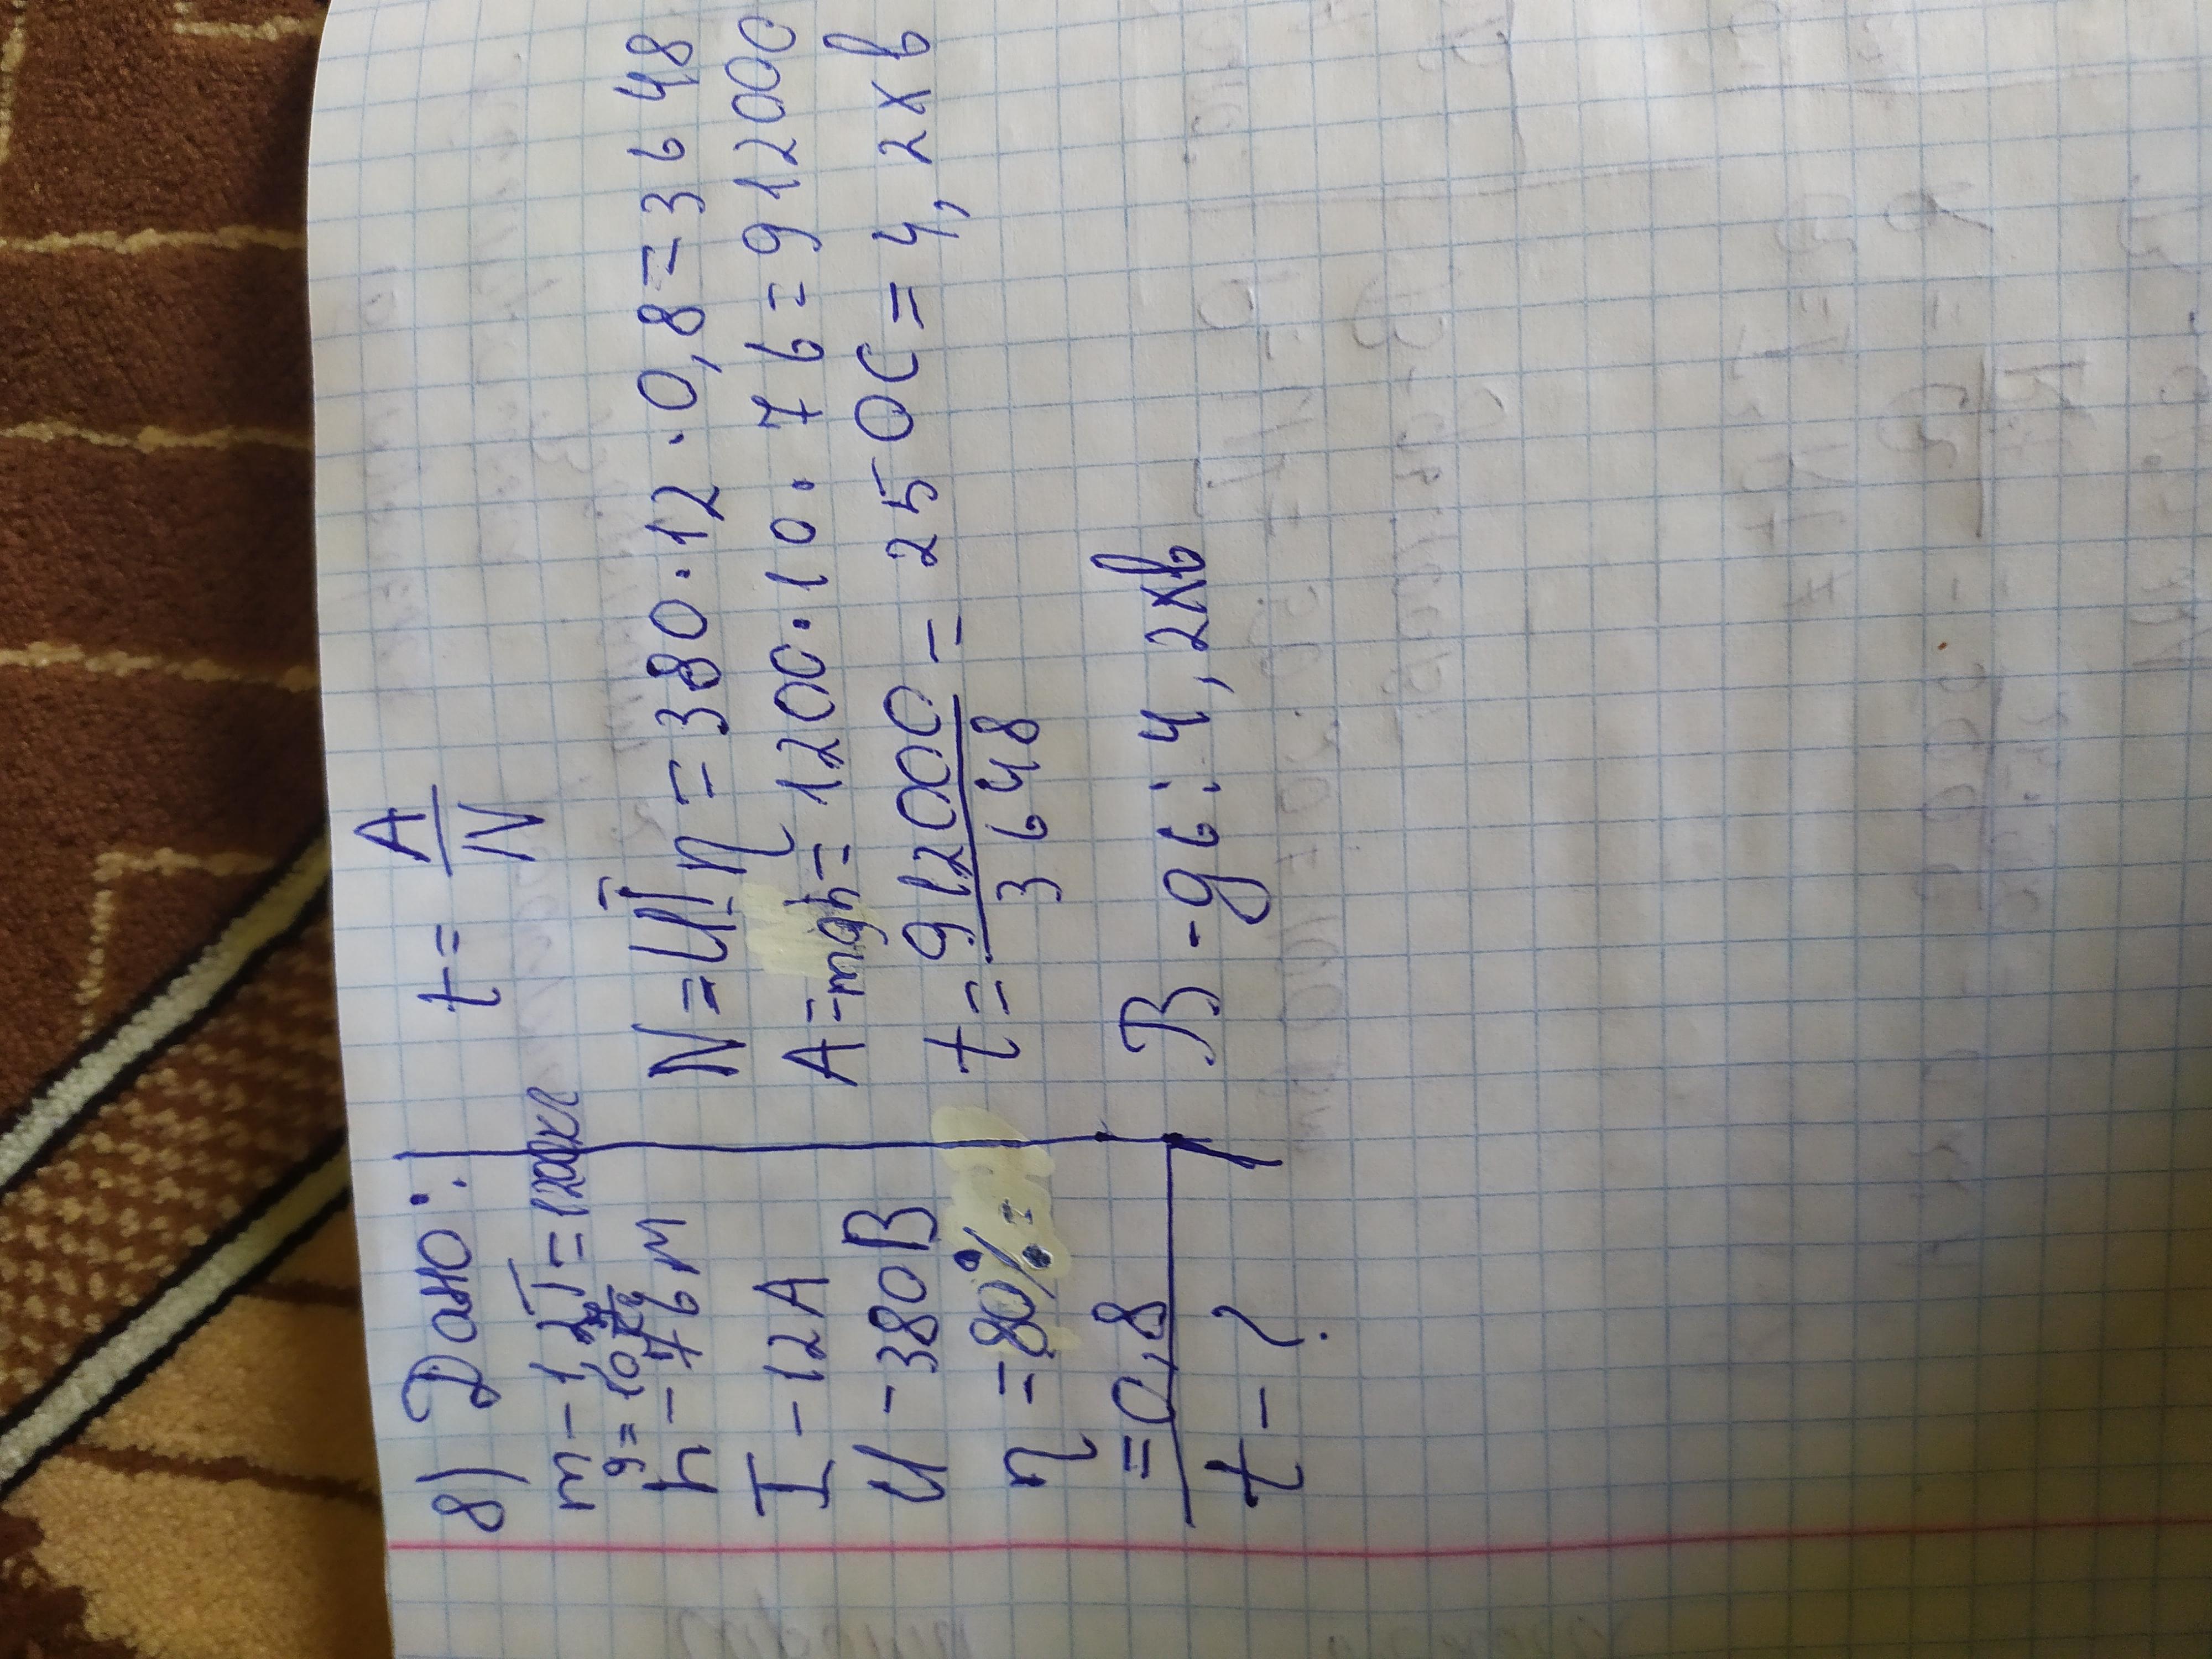 8) Дано:
m - 1,2т = 1200кг
g = 10 Н/кг
h - 76 м
I - 12А
U - 380В
η = 80% =
= 0,8
t - ?
t = A/N
N = UIη = 380 · 12 · 0,8 = 3648
A = mgh = 1200 · 10 · 76 = 912000
t = 912000/3648 = 250с = 4,2хв
В - дь: 4,2хв